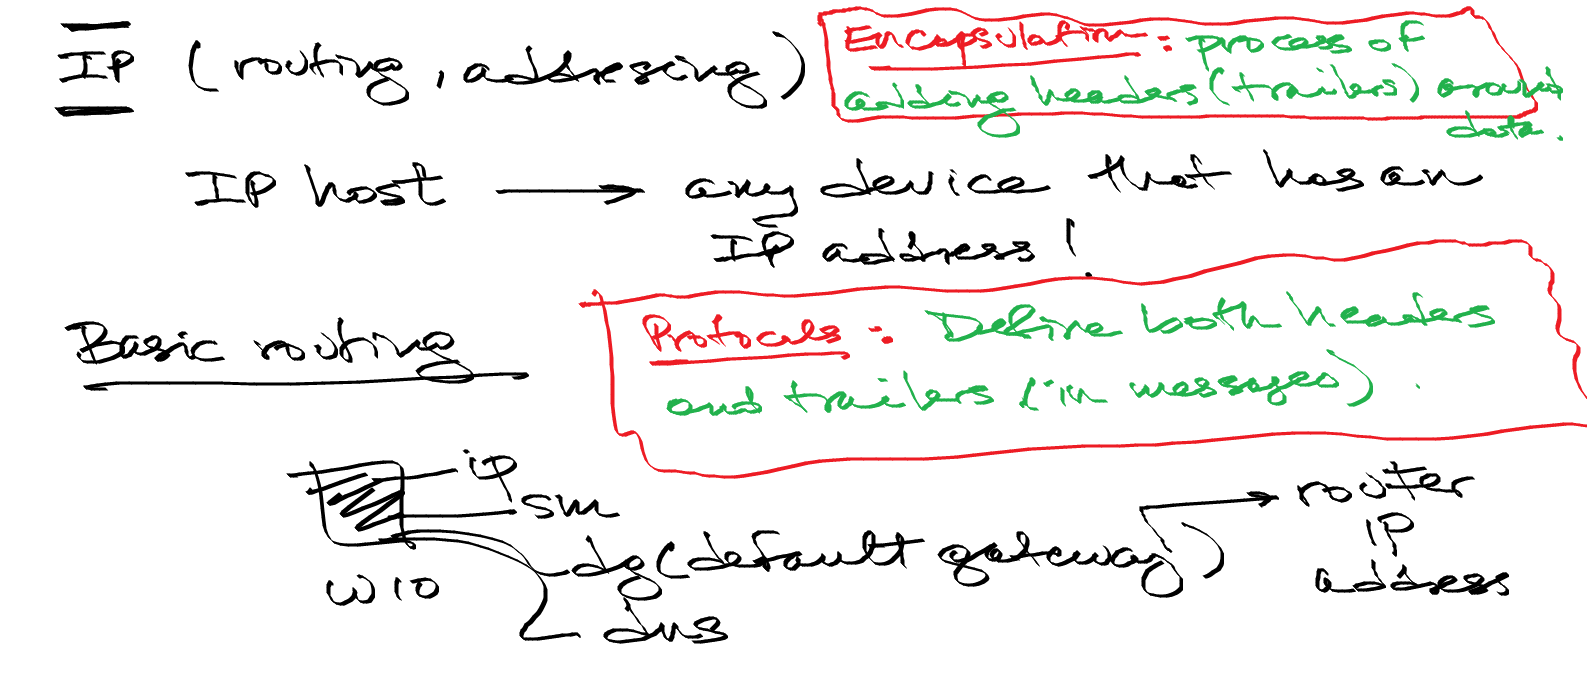 IP (routing, addressing)
Encapsulation: process of
adding headers (trailers) around
data.
IP host → any device that has an
IP address!
Basic routing
Protocals: Define both headers
and trailers (in messages).
ip
sm
dg (default gateway) → router
IP
address
dns
W10